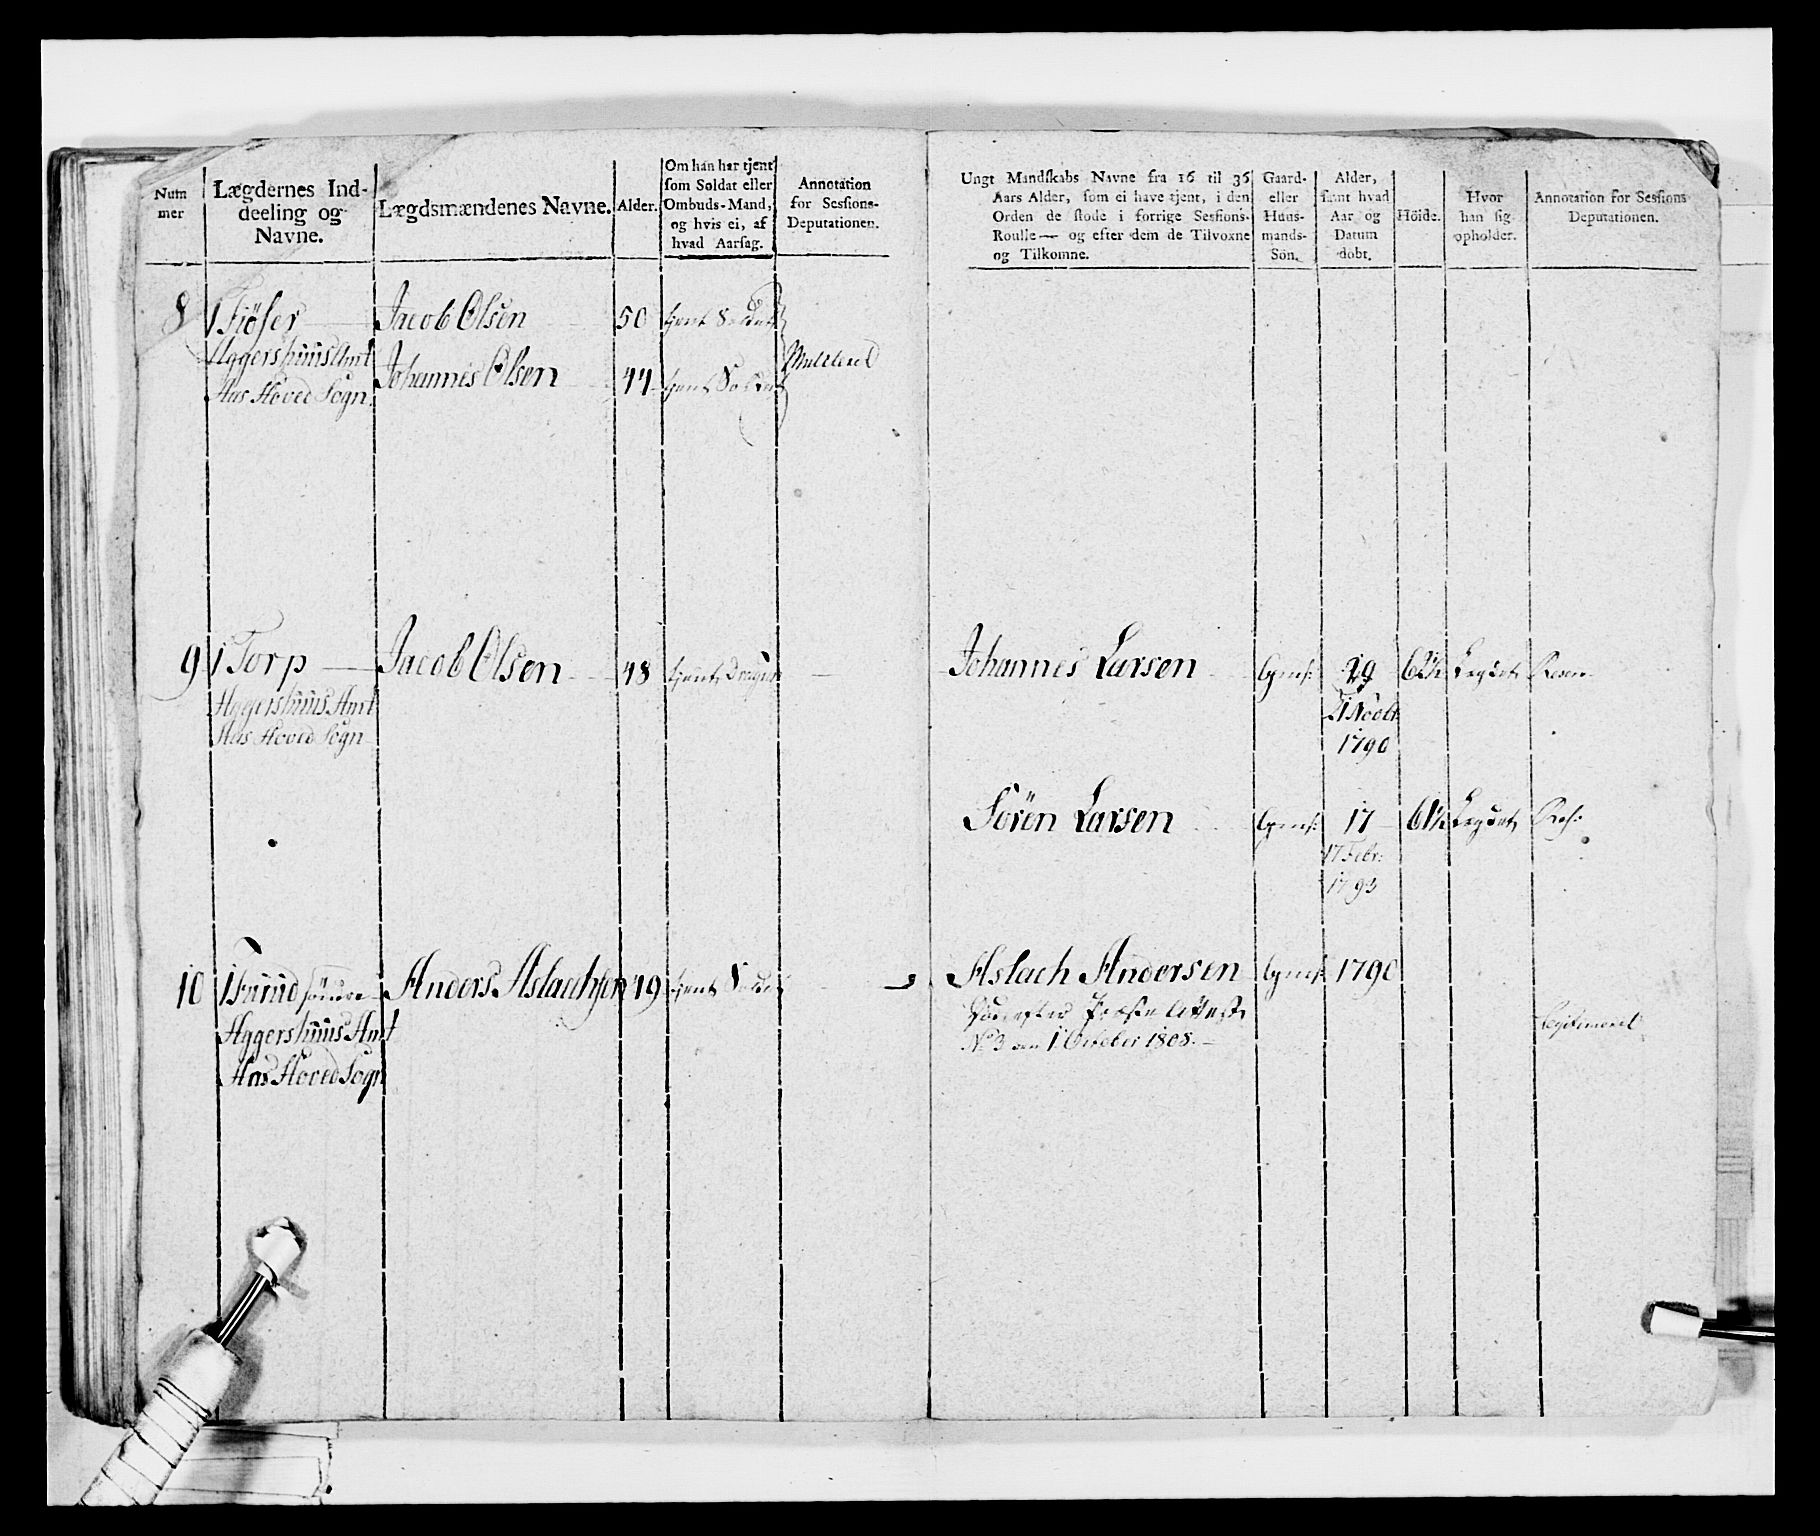 Num
mer
Lægdernes Ind-
deeling og
Navne.
Lægdsmændenes Navne.
Alder.
Om han har tjent
som Soldat eller
Ombuds-Mand,
og hvis ei, af
hvad Aarsag.
Annotation
for Sessions-
Deputationen.
8 1 Fiöser Jacob Olsen 50 tjent Soldat
Aggershuus Amt Johannes Olsen 44 tjent Soldat
Aas Hoved Sogn
9 1 Torp Jacob Olsen 48 tjent Dragun
Aggershuus Amt
Aas Hoved Sogn
10 1 søndre Anders Aslachsen 49 tjent Soldat
Aggershuus Amt
Aas Hoved Sogn
Ungt Mandskabs Navne fra 16 til 36
Aars Alder, som ei have tjent, i den
Orden de stode i forrige Sessions-
Roulle— og efter dem de Tilvoxne
og Tilkomne.
Gaard-
eller
Huus-
mands-
Sön.
Alder,
samt hvad
Aar og
Datum
dobt.
Höide.
Hvor
han sig
opholder.
Annotation for Sessions
Deputationen.
Johannes Larsen Gmds: 19 62½ Legdet
1790
Sören Larsen Gmds: 17 61½ Legdet
17 Febr:
1793
Aslach Andersen Gmds: 1790
No 3 1 October 1808.